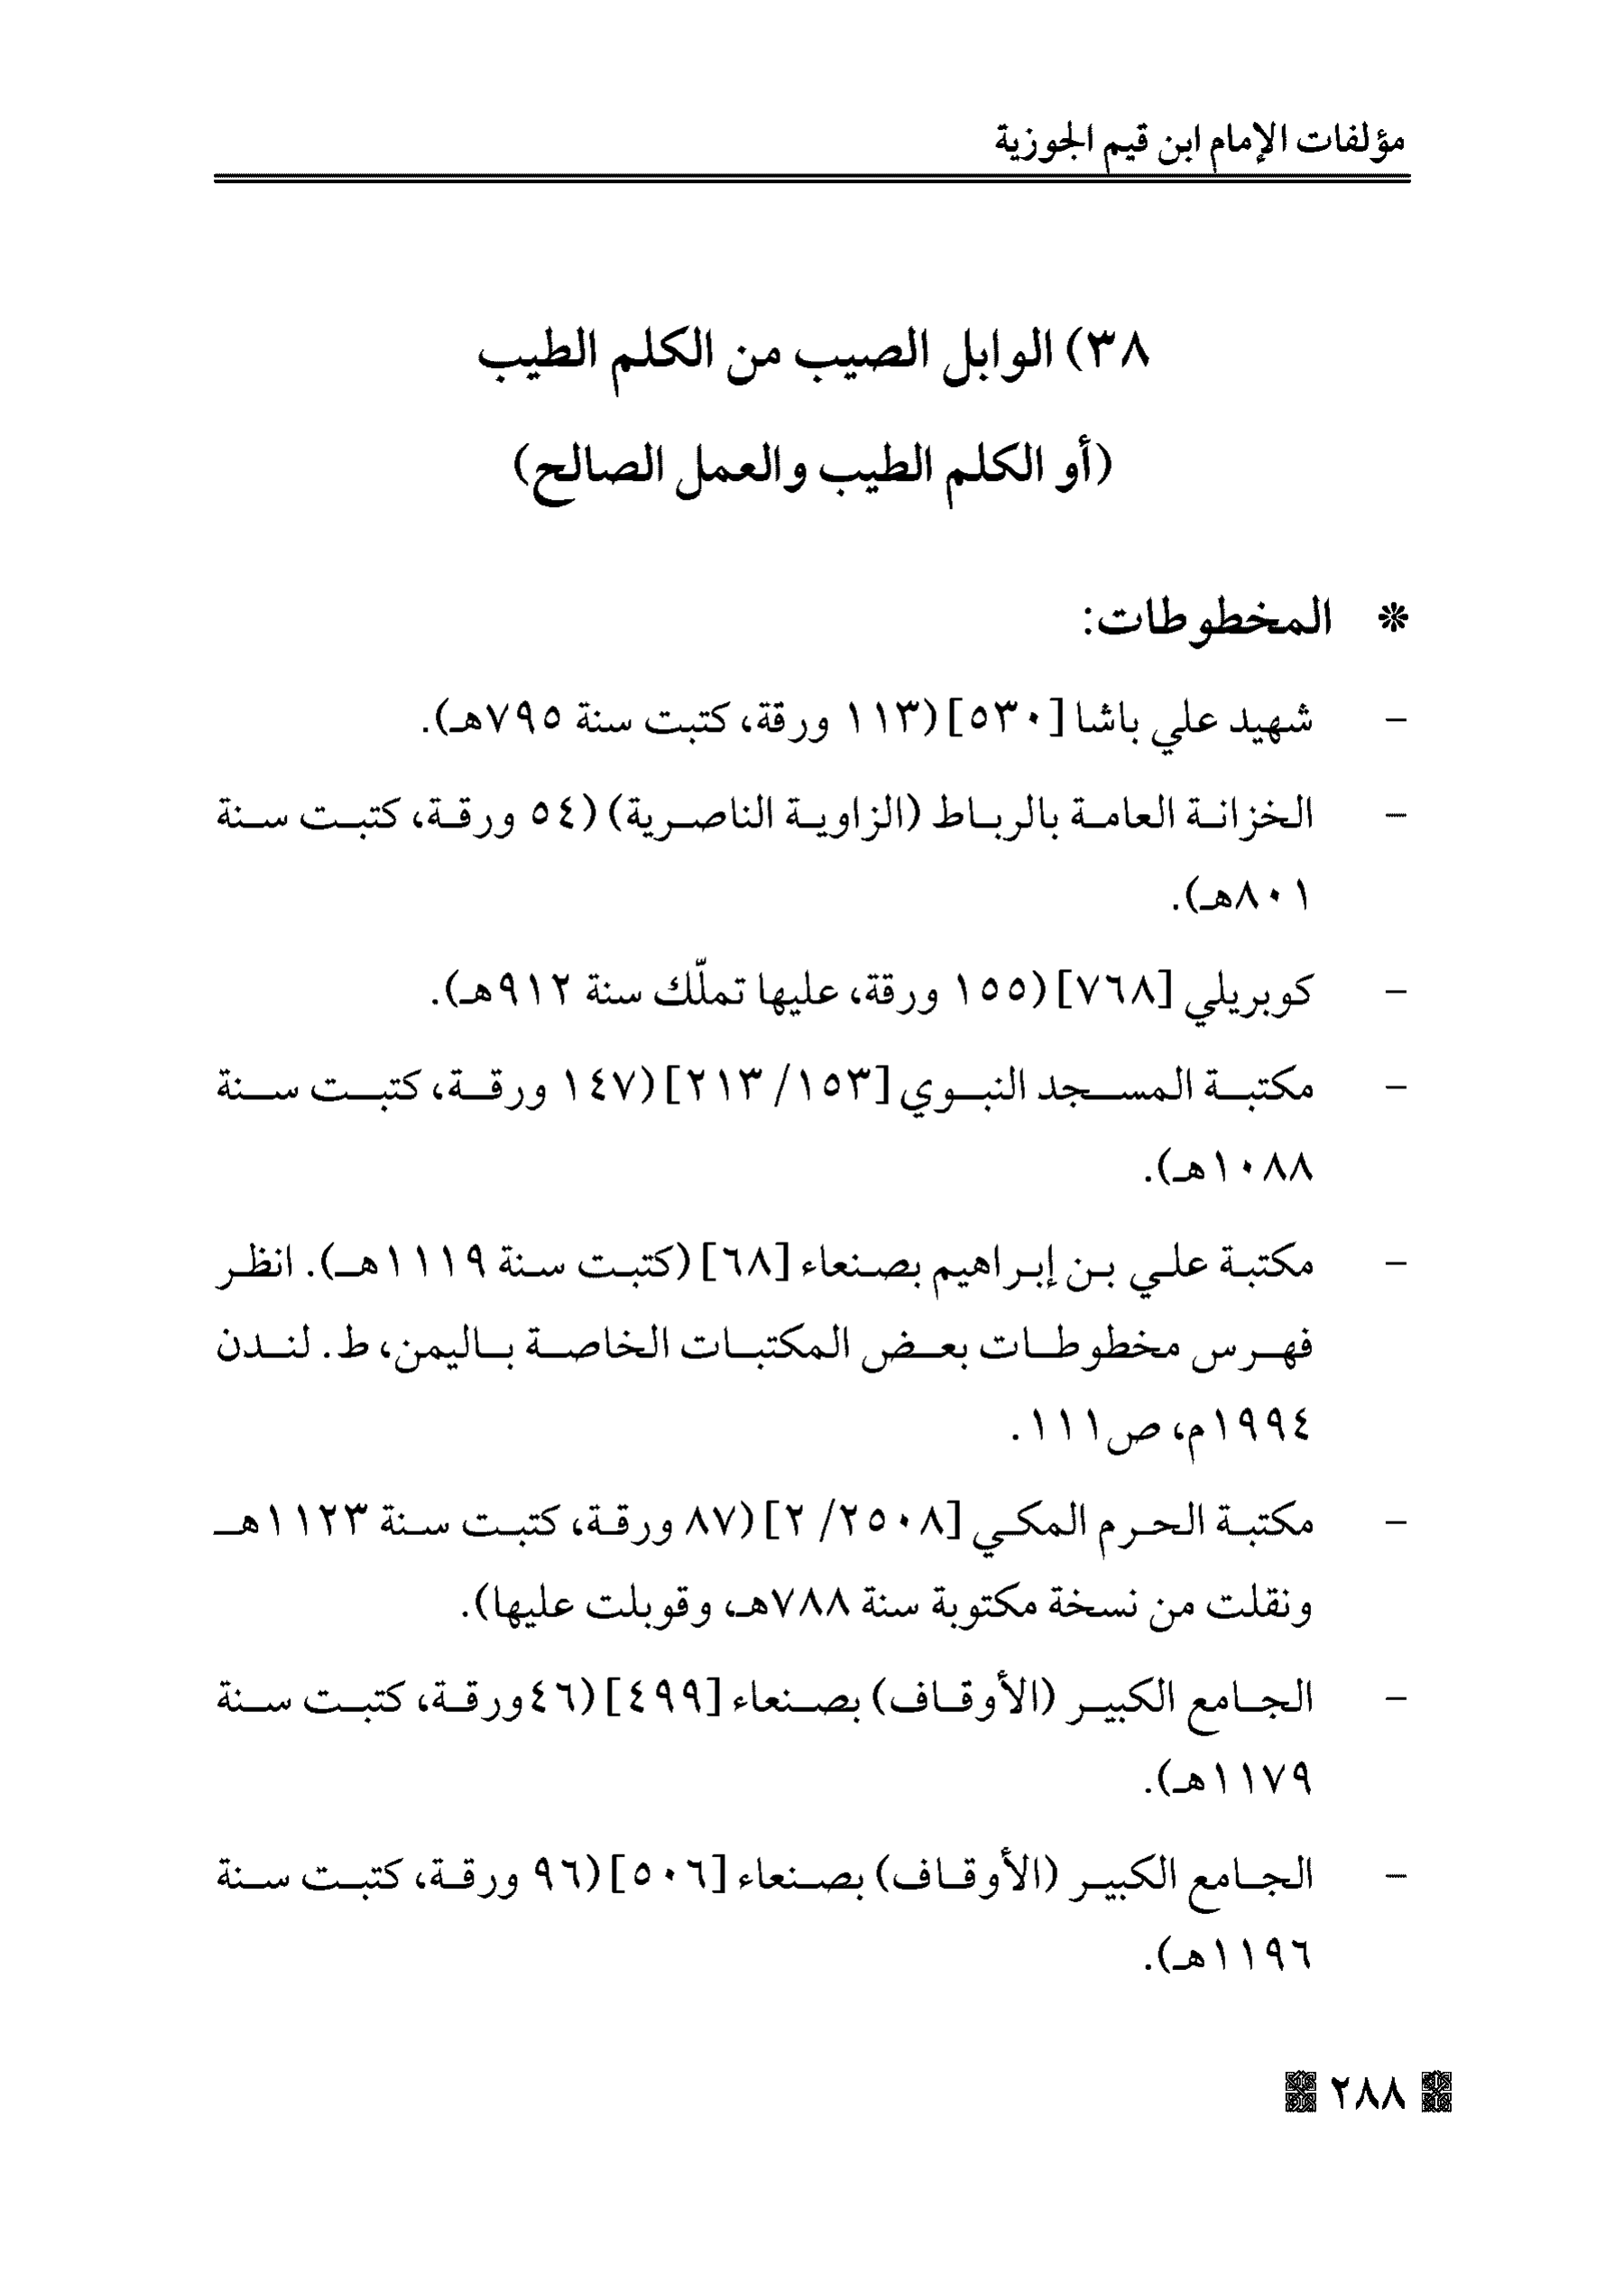 مؤلفات الإمام ابن قيم الجوزية
٣٨) الوابل الصيب من الكلم الطيب
(أو الكلم الطيب والعمل الصالح)
* المخطوطات:
- شهيد علي باشا [٥٣٠] (١١٣ ورقة، كتبت سنة ٧٩٥هـ).
- الخزانة العامة بالرباط (الزاوية الناصرية) (٥٤ ورقة، كتبت سنة
٨٠١هـ).
- كوبريلي [٧٦٨] (١٥٥ ورقة، عليها تملّك سنة ٩١٢هـ).
- مكتبة المسجد النبوي [٢١٣/١٥٣] (١٤٧ ورقة، كتبت سنة
١٠٨٨هـ).
- مكتبة علي بن إبراهيم بصنعاء [٦٨] (كتبت سنة ١١١٩هـ). انظر
فهرس مخطوطات بعض المكتبات الخاصة باليمن، ط. لندن
١٩٩٤م، ص١١١.
- مكتبة الحرم المكي [٢/٢٥٠٨] (٨٧ ورقة، كتبت سنة ١١٢٣هـ
ونقلت من نسخة مكتوبة سنة ٧٨٨هـ، وقوبلت عليها).
- الجامع الكبير (الأوقاف) بصنعاء [٤٩٩] (٤٦ورقة، كتبت سنة
١١٧٩هـ).
- الجامع الكبير (الأوقاف) بصنعاء [٥٠٦] (٩٦ ورقة، كتبت سنة
١١٩٦هـ).
٢٨٨